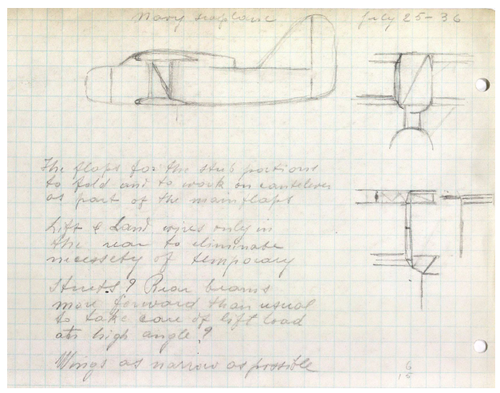 Navy seaplane July 25-36
The flaps for the stub portions
to fold and to work on cantilever
as part of the main flaps
Lift & Land wires only in
the rear to eliminate
necessety of temporary
Struts? Rear beams
more forward than usual
to take care of lift load
at high angle?
Wings as narrow as possible
6